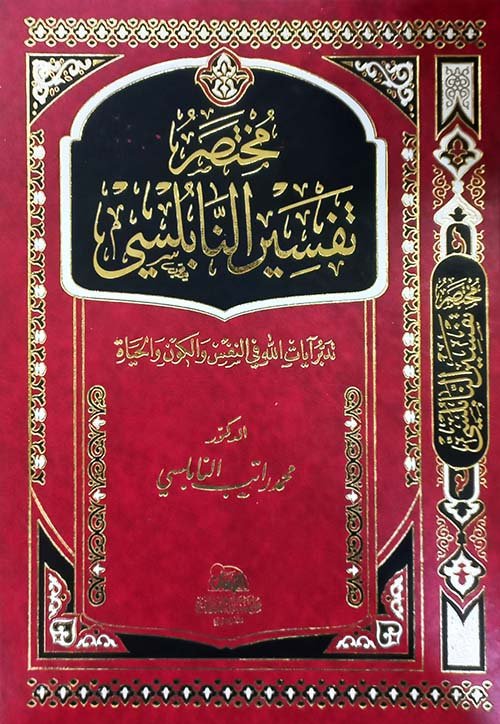 مُختَصَر
تَفسِير النَّابُلسِي
تدبر آيات الله في النفس والكون والحياة
الدكتور
محمد راتب النابلسي
مختصر تفسير النابلسي